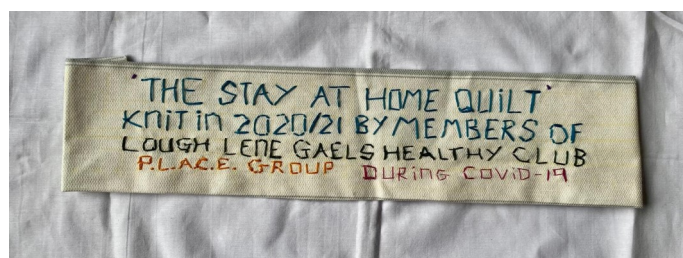 'THE STAY AT HOME QUILT'
KNIT in 2020/21 BY MEMBERS OF
LOUGH LENE GAELS HEALTHY CLUB
P.L.A.C.E. GROUP DURING COVID-19